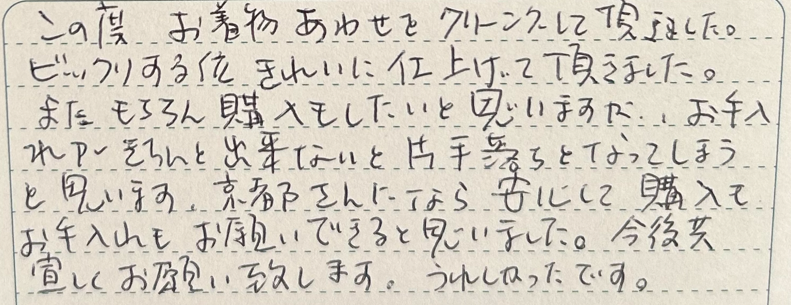 この度 お着物あわせをクリーニングして頂きました。
ビックリする位 きれいに仕上げて頂きました。
またもちろん購入もしたいと思いますが、お手入
れがきちんと出来ないと片手落ちとなってしまう
と思います。京都さんになら安心して購入も
お手入れもお願いできると思いました。今後共
宜しくお願い致します。うれしかったです。